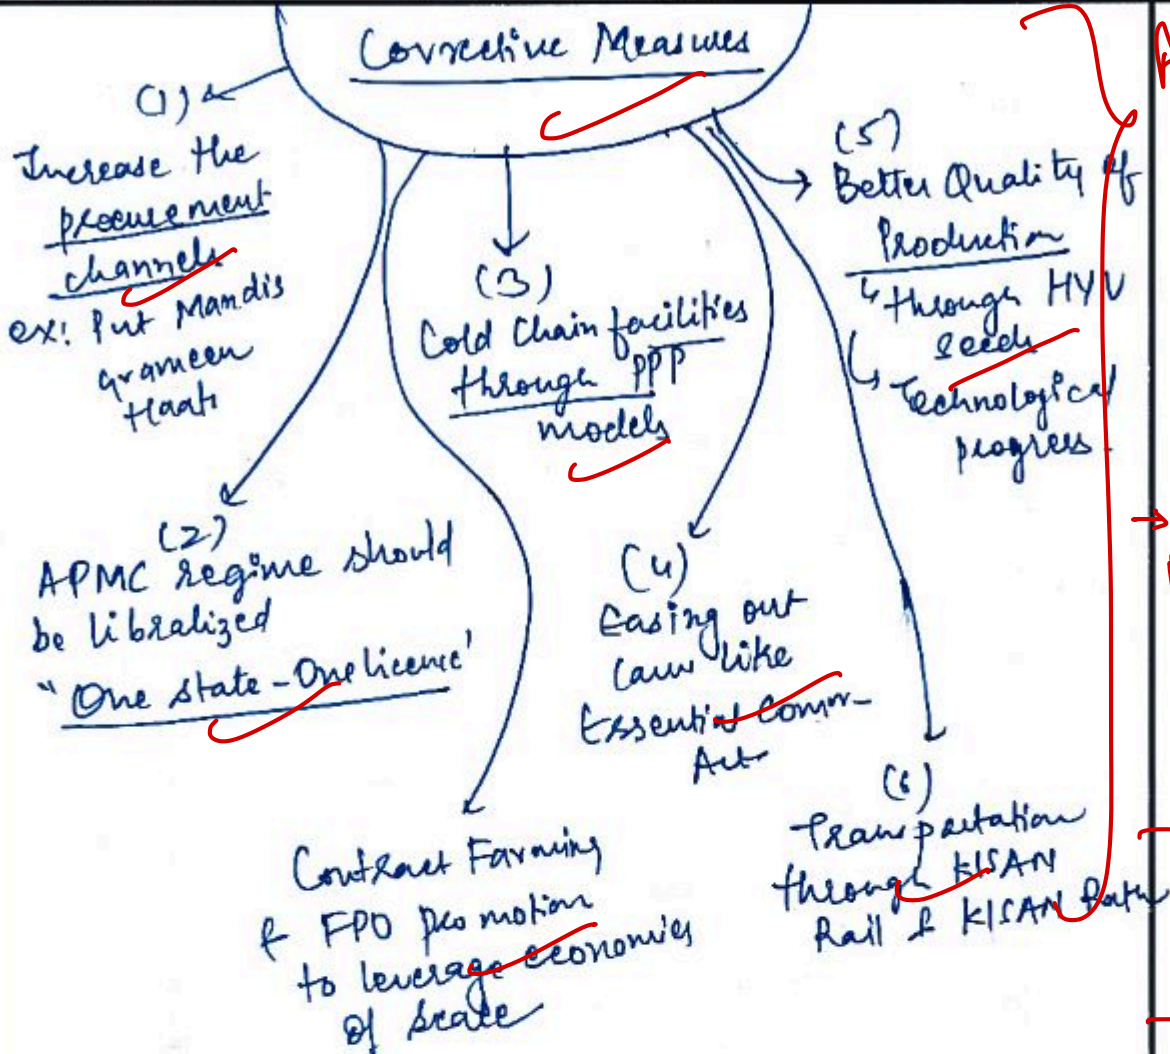 Corrective Measures
(1)
Increase the
procurement
channels
ex: Put Mandis
Grameen
Haats
(2)
APMC regime should
be libralized
"One state - One licence'
(3)
Cold Chain facilities
through PPP
models
(4)
Easing out
Laws like
Essential Comm-
Act
(5)
Better Quality of
Production
↳ through HYV
seeds
↳ Technological
progress.
(6)
Transportation
through KISAN
Rail & KISAN Rath
Contract Farming
& FPO promotion
to leverage economies
of scale